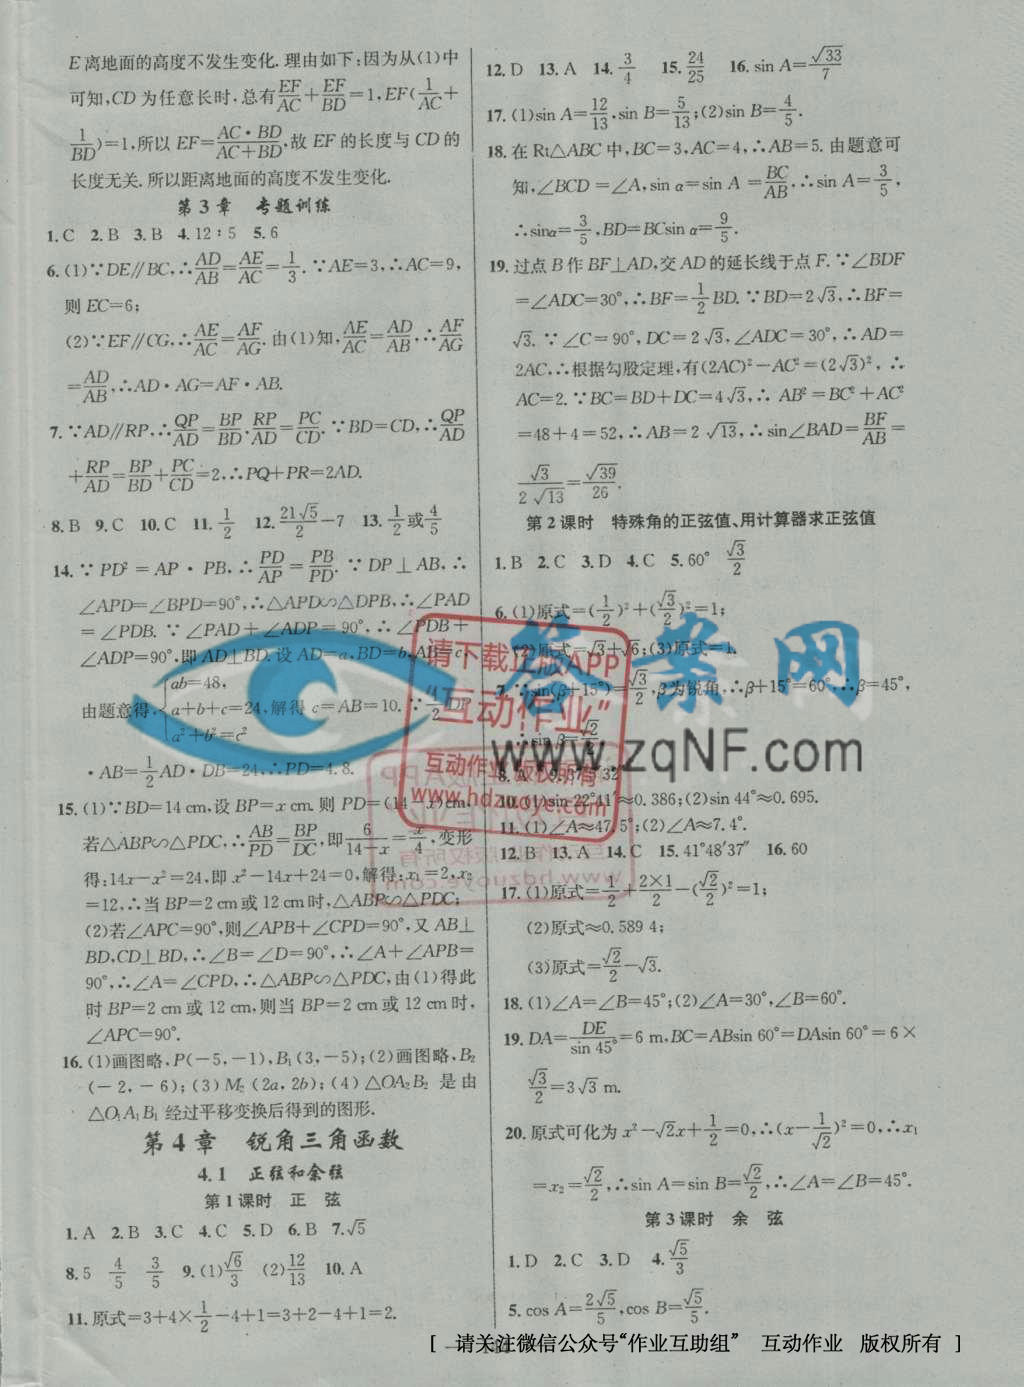 E离地面的高度不发生变化.理由如下:因为从(1)中
可知,CD为任意长时,总有EF/AC+EF/BD=1,EF(1/AC+
1/BD)=1,所以EF=AC·BD/(AC+BD),故EF的长度与CD的
长度无关.所以距离地面的高度不发生变化.
第3章 专题训练
1.C 2.B 3.B 4.12∶5 5.6
6.(1)∵DE∥BC,∴AD/AB=AE/AC=1/3.∵AE=3,∴AC=9,
则EC=6;
(2)∵EF∥CG,∴AE/AC=AF/AG.由(1)知,AE/AC=AD/AB,∴AF/AG
=AD/AB,∴AD·AG=AF·AB.
7.∵AD∥RP,∴QP/AD=BP/BD,RP/AD=PC/CD.∵BD=CD,∴QP/AD
+RP/AD=BP/BD+PC/CD=2,∴PQ+PR=2AD.
8.B 9.C 10.C 11.1/2 12.21√5/2-7 13.1/2或4/5
14.∵PD²=AP·PB,∴PD/AP=PB/PD.∵DP⊥AB,∴
∠APD=∠BPD=90°,∴△APD∽△DPB,∴∠PAD
=∠PDB.∵∠PAD+∠ADP=90°,∴∠PDB+
∠ADP=90°,即AD⊥BD.设AD=a,BD=b,AB=c,
由题意得,{ab=48, a+b+c=24, a²+b²=c² 解得c=AB=10.∵1/2DP
·AB=1/2AD·DB=24,∴PD=4.8.
15.(1)∵BD=14cm,设BP=xcm.则PD=(14-x)cm,
若△ABP∽△PDC,∴AB/PD=BP/DC,即6/(14-x)=x/4,变形
得:14x-x²=24,即x²-14x+24=0,解得:x₁=2,x₂
=12,∴当BP=2cm或12cm时,△ABP∽△PDC;
(2)若∠APC=90°,则∠APB+∠CPD=90°,又AB⊥
BD,CD⊥BD,∴∠B=∠D=90°,∴∠A+∠APB=
90°,∴∠A=∠CPD,∴△ABP∽△PDC,由(1)得此
时BP=2cm或12cm,则当BP=2cm或12cm时,
∠APC=90°.
16.(1)画图略,P(-5,-1),B₁(3,-5);(2)画图略,B₂
(-2,-6);(3)M₂(2a,2b);(4)△OA₂B₂是由
△O₁A₁B₁经过平移变换后得到的图形.
第4章 锐角三角函数
4.1 正弦和余弦
第1课时 正 弦
1.A 2.B 3.C 4.C 5.D 6.B 7.√5
8.5 4/5 3/5 9.(1)√6/3 (2)12/13 10.A
11.原式=3+4×1/2-4+1=3+2-4+1=2.
12.D 13.A 14.3/4 15.24/25 16.sin A=√33/7
17.(1)sin A=12/13,sin B=5/13;(2)sin B=4/5.
18.在Rt△ABC中,BC=3,AC=4,∴AB=5.由题意可
知,∠BCD=∠A,sin α=sin A=BC/AB,∴sin A=3/5,
∴sinα=3/5,BD=BCsin α=9/5.
19.过点B作BF⊥AD,交AD的延长线于点F.∵∠BDF
=∠ADC=30°,∴BF=1/2BD.∵BD=2√3,∴BF=
√3.∵∠C=90°,DC=2√3,∠ADC=30°,∴AD=
2AC,∴根据勾股定理,有(2AC)²-AC²=(2√3)²,∴
AC=2.∵BC=BD+DC=4√3,∴AB²=BC²+AC²
=48+4=52,∴AB=2√13,∴sin∠BAD=BF/AB=
√3/2√13=√39/26.
第2课时 特殊角的正弦值、用计算器求正弦值
1.B 2.C 3.D 4.C 5.60° √3/2
6.(1)原式=(1/2)²+(√3/2)²=1;
(2)原式=√3+√6;(3)原式=1.
7.∵sin(β+15°)=√3/2,β为锐角,∴β+15°=60°,∴β=45°,
∴sin β=√2/2.
8.A
10.(1)sin 22°41′≈0.386;(2)sin 44°≈0.695.
11.(1)∠A≈47.5°;(2)∠A≈7.4°.
12.B 13.A 14.C 15.41°48′37″ 16.60
17.(1)原式=1/2+2×1/2-(√2/2)²=1;
(2)原式≈0.589 4;
(3)原式=√2/2-√3.
18.(1)∠A=∠B=45°;(2)∠A=30°,∠B=60°.
19.DA=DE/sin 45°=6 m,BC=ABsin 60°=DAsin 60°=6×
√3/2=3√3 m.
20.原式可化为x²-√2x+1/2=0,∴(x-1/√2)²=0,∴x₁
=x₂=√2/2,∴sin A=sin B=√2/2,∴∠A=∠B=45°.
第3课时 余 弦
1.D 2.C 3.D 4.√5/3
5.cos A=2√5/5,cos B=√5/5.
答案网
www.zqNF.com
请下载正版APP
“互动作业”
互动作业 版权所有
www.hdzuoye.com
[ 请关注微信公众号“作业互助组” 互动作业 版权所有 ]